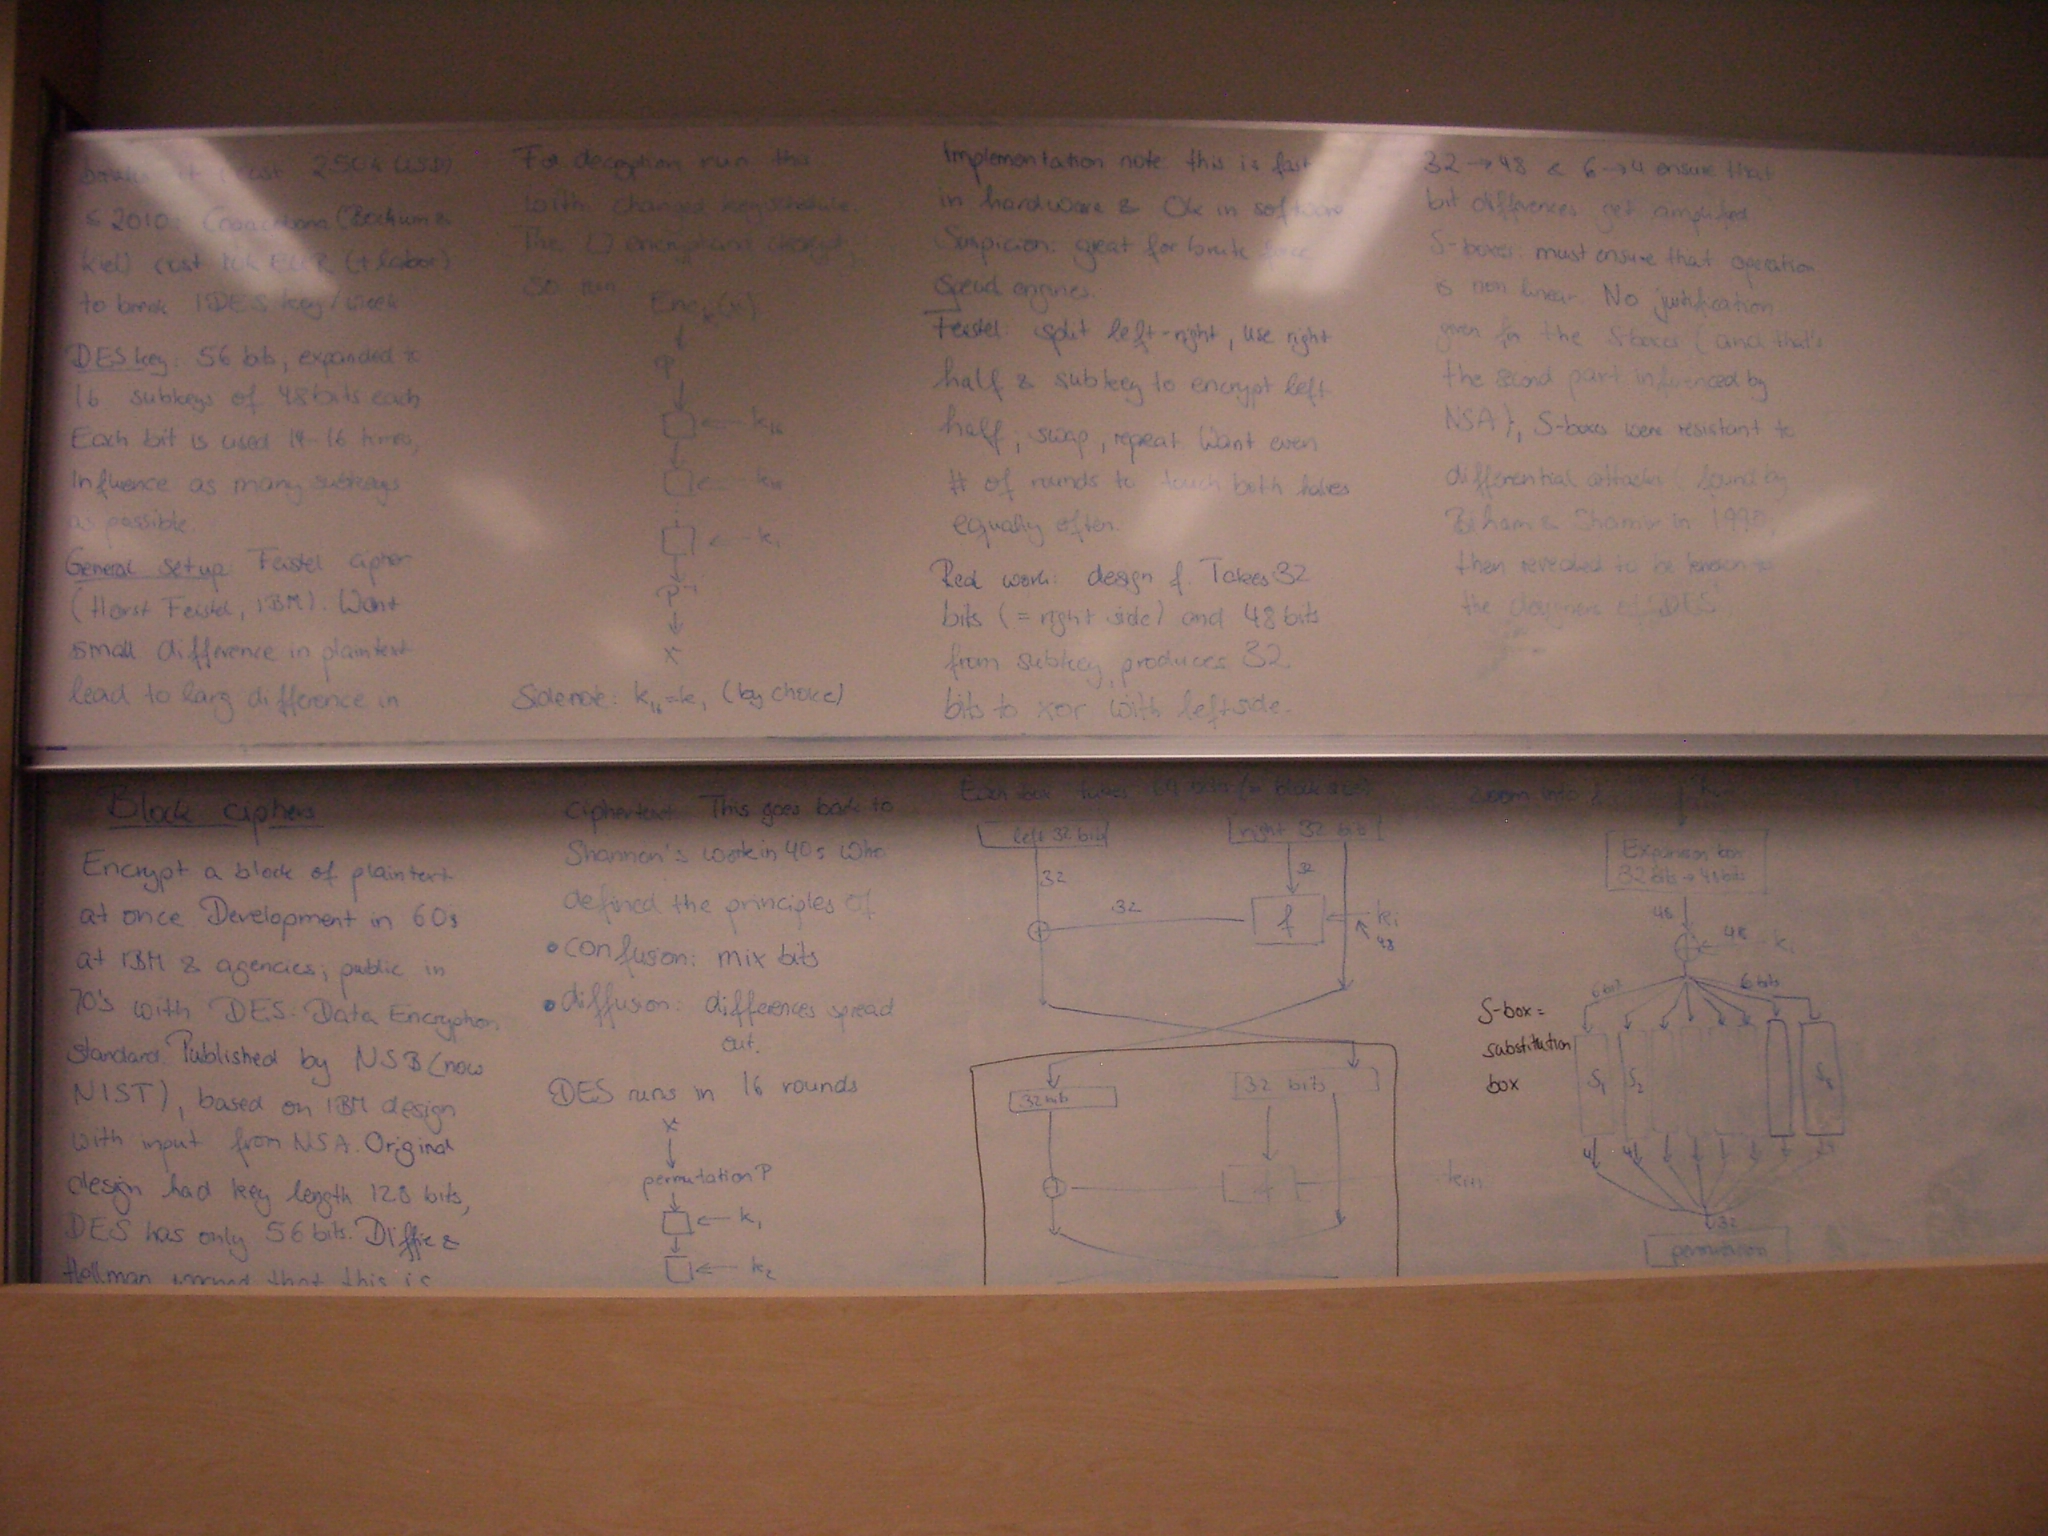 cost 250k USD
& 2010: (Bochum &
Kiel) cost 10k EUR (+ labor)
to break 1 DES key/week
DES key: 56 bit, expanded to
16 subkeys of 48 bits each
Each bit is used 14-16 times,
Influence as many subkeys
as possible
General setup: Feistel cipher
(Horst Feistel, IBM). Want
small difference in plaintext
lead to larg difference in
For decryption run the
with changed keyschedule.
The
so run
Enc_k(x)
P
k_16
k_15
k_1
P^-1
x
Sidenote: k_16=k_1 (by choice)
Implementation note: this is fast
in hardware & Ok in software
Suspicion: great for brute force
speed engines.
Feistel: split left-right, use right
half & subkey to encrypt left
half; swap, repeat. Want even
# of rounds to touch both halves
equally often.
Red work: design f. Takes 32
bits (= right side) and 48 bits
from subkey, produces 32
bits to xor with left side.
32→48 & 6→4 ensure that
bit differences get amplified
S-boxes: must ensure that operation
is non linear. No justification
given for the S-boxes (and that's
the second part influenced by
NSA), S-boxes were resistant to
differential attacks (found by
Biham & Shamir in 1990,
then revealed to be known to
the designers of DES
Block ciphers
Encrypt a block of plaintext
at once Development in 60s
at IBM & agencies; public in
70's with DES: Data Encryption
standard. Published by NSB (now
NIST), based on IBM design
with input from NSA. Original
design had key length 128 bits,
DES has only 56 bits. Diffie &
Hellman warned that this is
ciphertext. This goes back to
Shannon's work in 40s who
defined the principles of
• confusion: mix bits
• diffusion: differences spread
out.
DES runs in 16 rounds
x
permutation P
k_1
k_2
Each box takes 64 bits (= block size)
left 32 bits
right 32 bit
32
32
32
f
k_i
48
32 bits
32 bits
f
k_i+1
Zoom into f
Expansion box
32 bits → 48 bits
48
48
k_i
6 bit
6 bits
S-box =
substitution
box
S_1
S_2
S_8
4
4
4
32
permutation